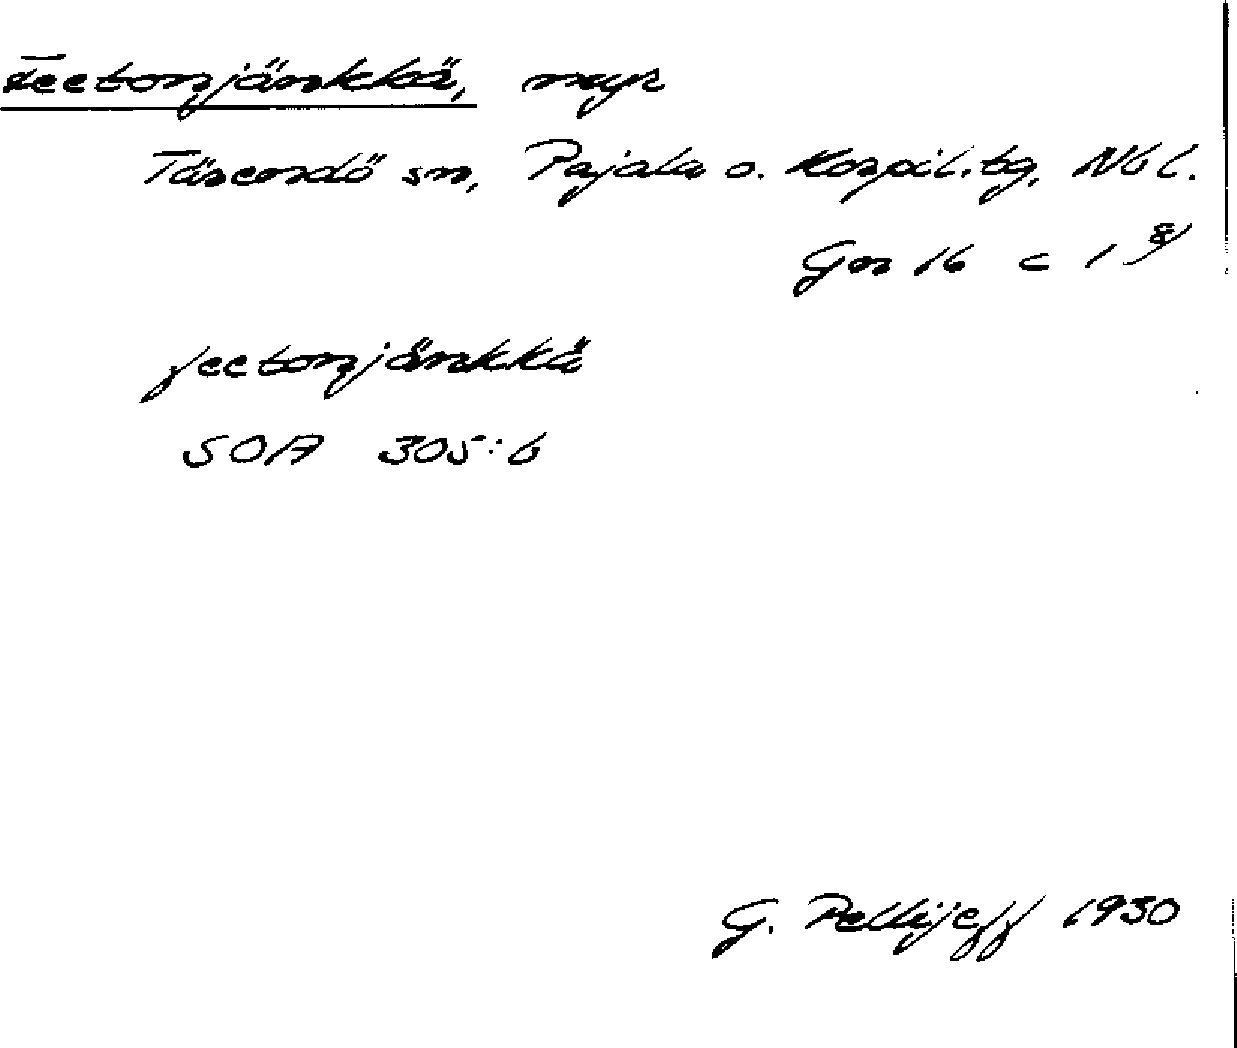 Feetonjänkkä, myr
Tärendö sn, Pajala o. Korpil. tg, Nb l.
Gn 16 c 1 g
feetonjänkkä
SOA 305:6
G. Pellijeff 1930